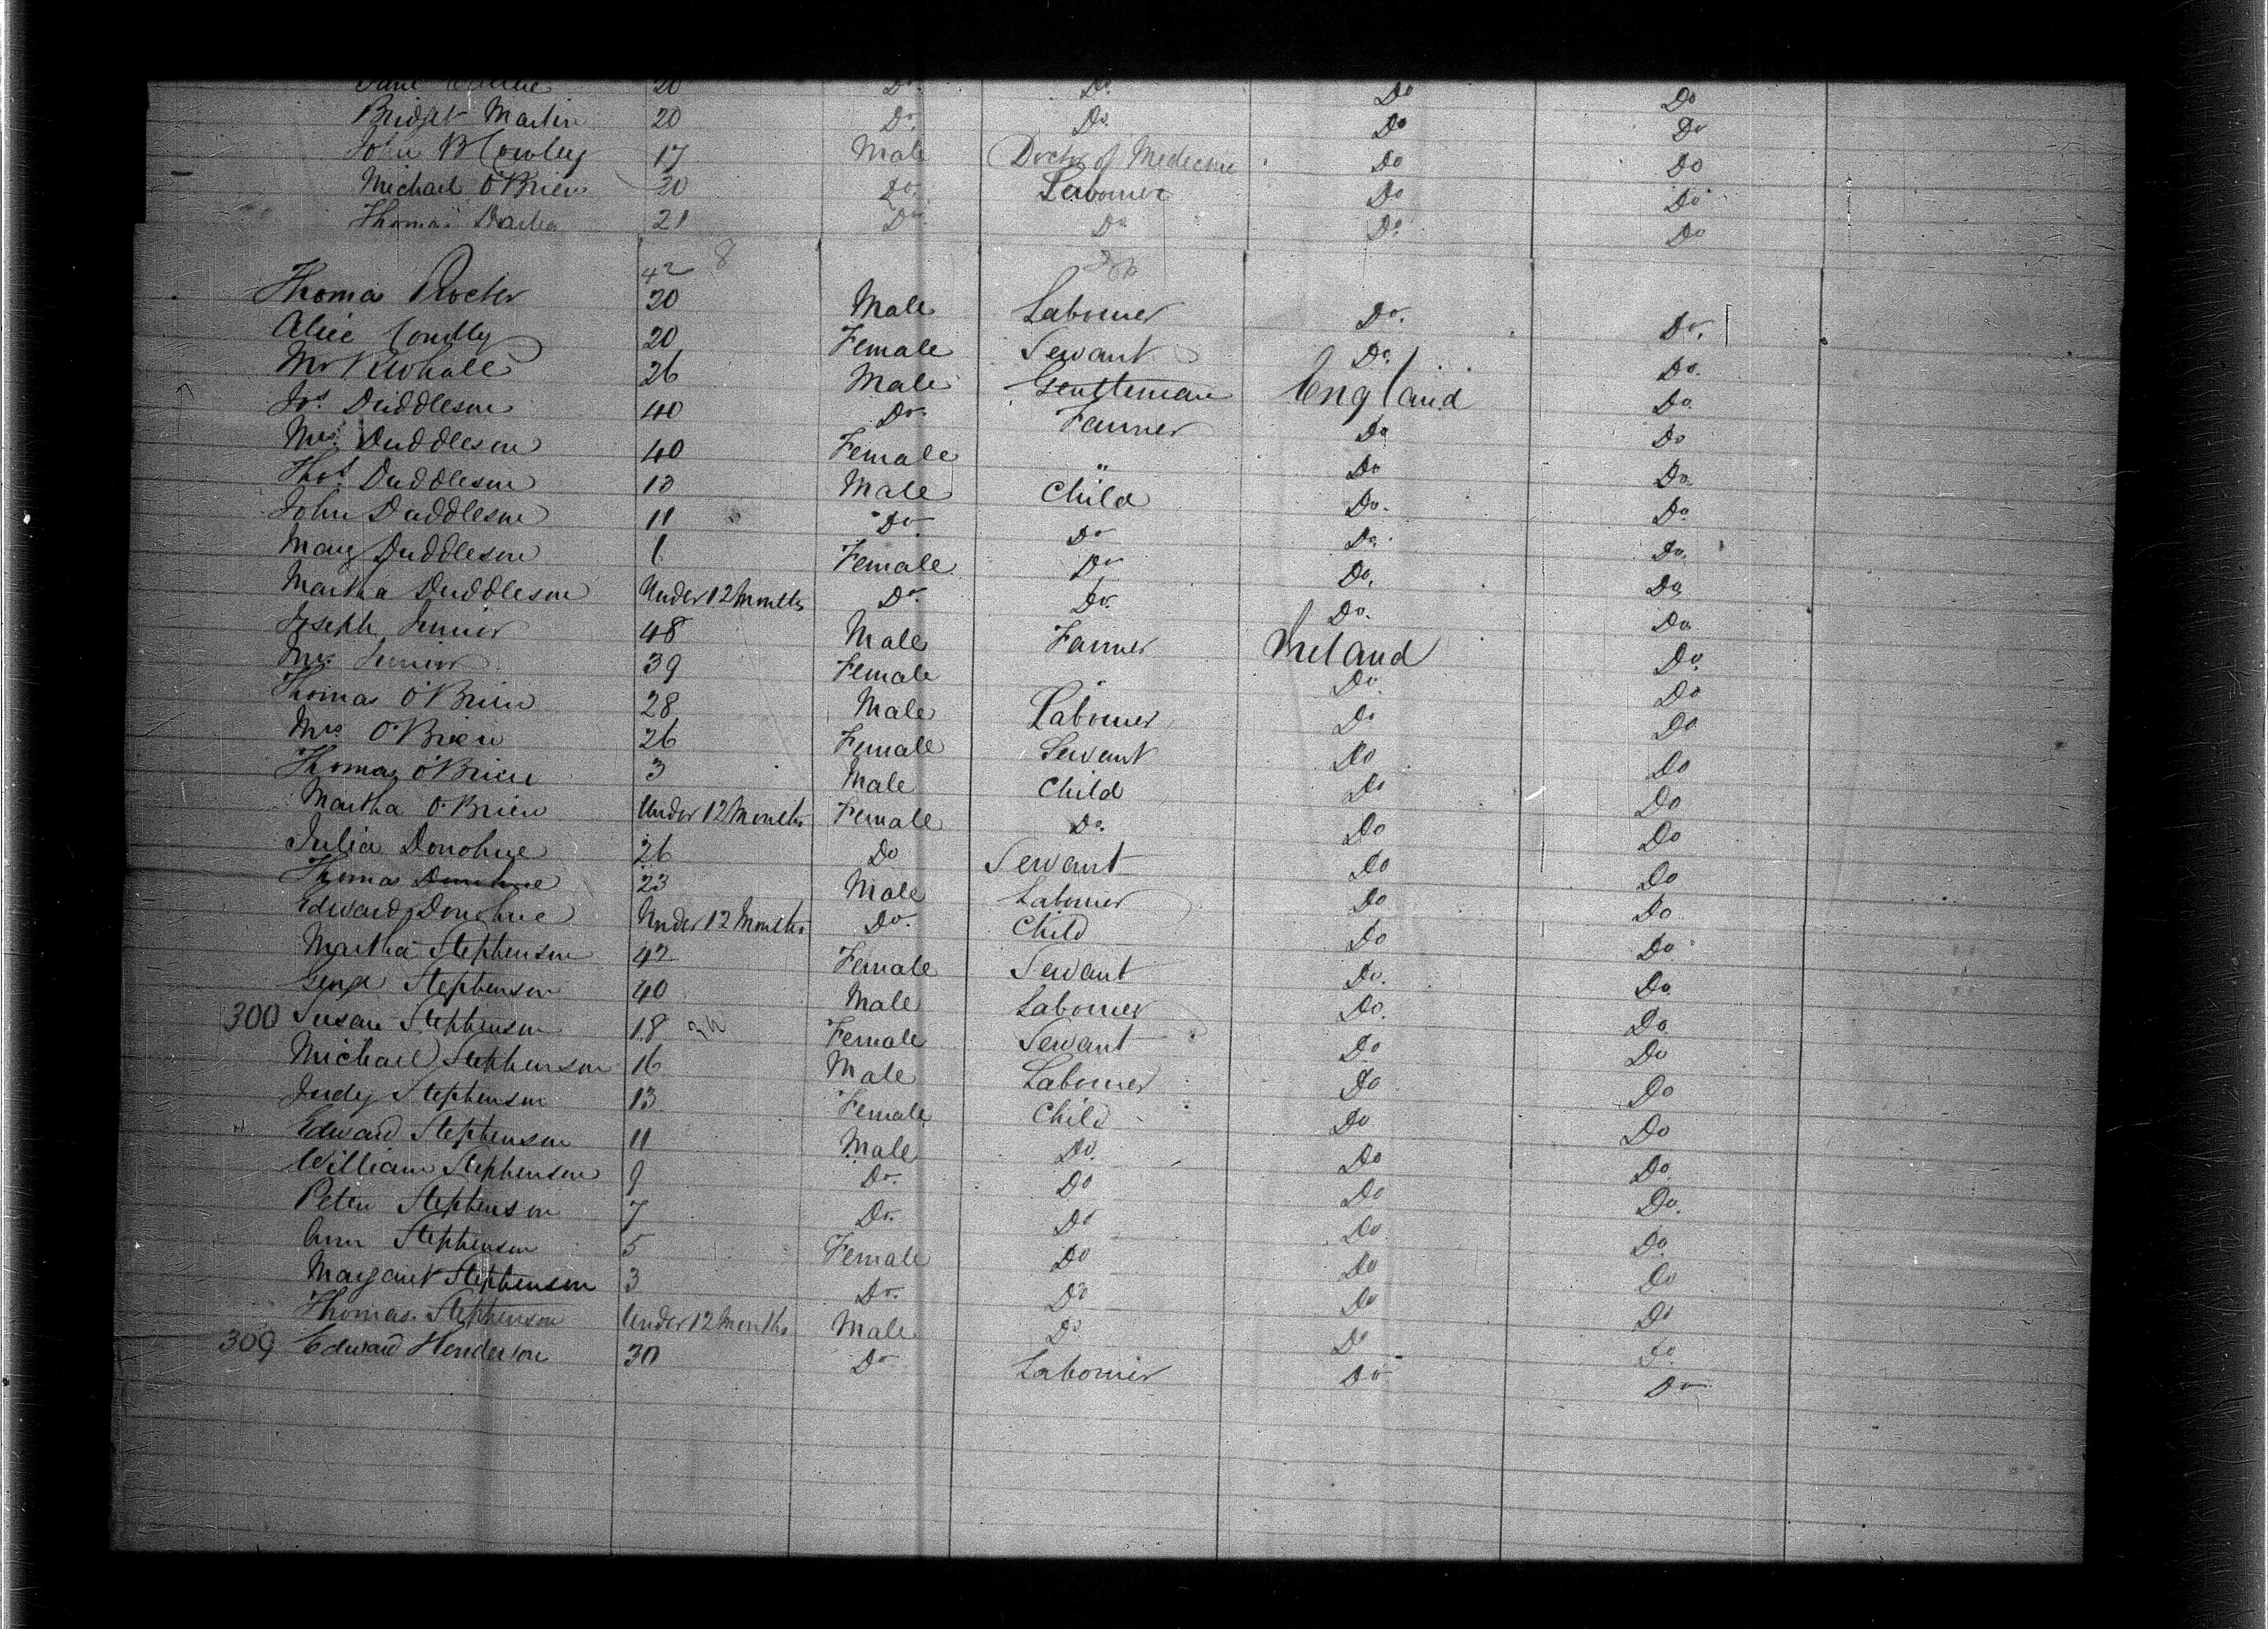 20 Do. Do. Do Do
Bridget Martin 20 Do. Do. Do Do
John B Cowley 17 Male Doctor of Medecine Do Do
Michael O'Brien 20 Do. Labourer Do Do
Thomas 21 Do. Do Do. Do
42 8
Thomas Procter 20 Male Labourer Do. Do.
Alice Conolly 20 Female Servant Do. Do.
Mr 26 Male Gentleman England Do.
Jos. Duddleson 40 Do. Farmer Do Do
Mrs. Duddleson 40 Female " Do Do.
Thos. Duddleson 13 Male Child Do. Do.
John Duddleson 11 Do. Do Do. Do.
Mary Duddleson 6 Female Do Do. Do.
Martha Duddleson Under 12 Months Do. Do. Do. Do.
Joseph Junior 48 Male Farmer Ireland Do.
Mrs. Junior 39 Female " Do. Do
Thomas O'Brien 28 Male Labourer Do Do
Mrs O'Brien 26 Female Servant Do Do
Thomas O'Brien 3 Male Child Do Do
Martha O'Brien Under 12 Months Female Do. Do Do
Julia Donohue 26 Do Servant Do Do
Thomas Donohue 23 Male Labourer Do Do
Edward Donohue Under 12 Months Do. Child Do Do
Martha Stephenson 42 Female Servant Do. Do.
George Stephenson 40 Male Labourer Do. Do.
300 Susan Stephenson 18 Female Servant Do Do
Michael Stephenson 16 Male Labourer Do Do
Judy Stephenson 13 Female Child Do Do
Edward Stephenson 11 Male Do. Do Do.
William Stephenson 9 Do. Do Do Do.
Peter Stephenson 7 Do. Do Do Do.
Ann Stephenson 5 Female Do Do Do
Margaret Stephenson 3 Do. Do Do Do
Thomas Stephenson Under 12 Months Male Do Do Do.
309 Edward Henderson 30 Do Labourer Do Do